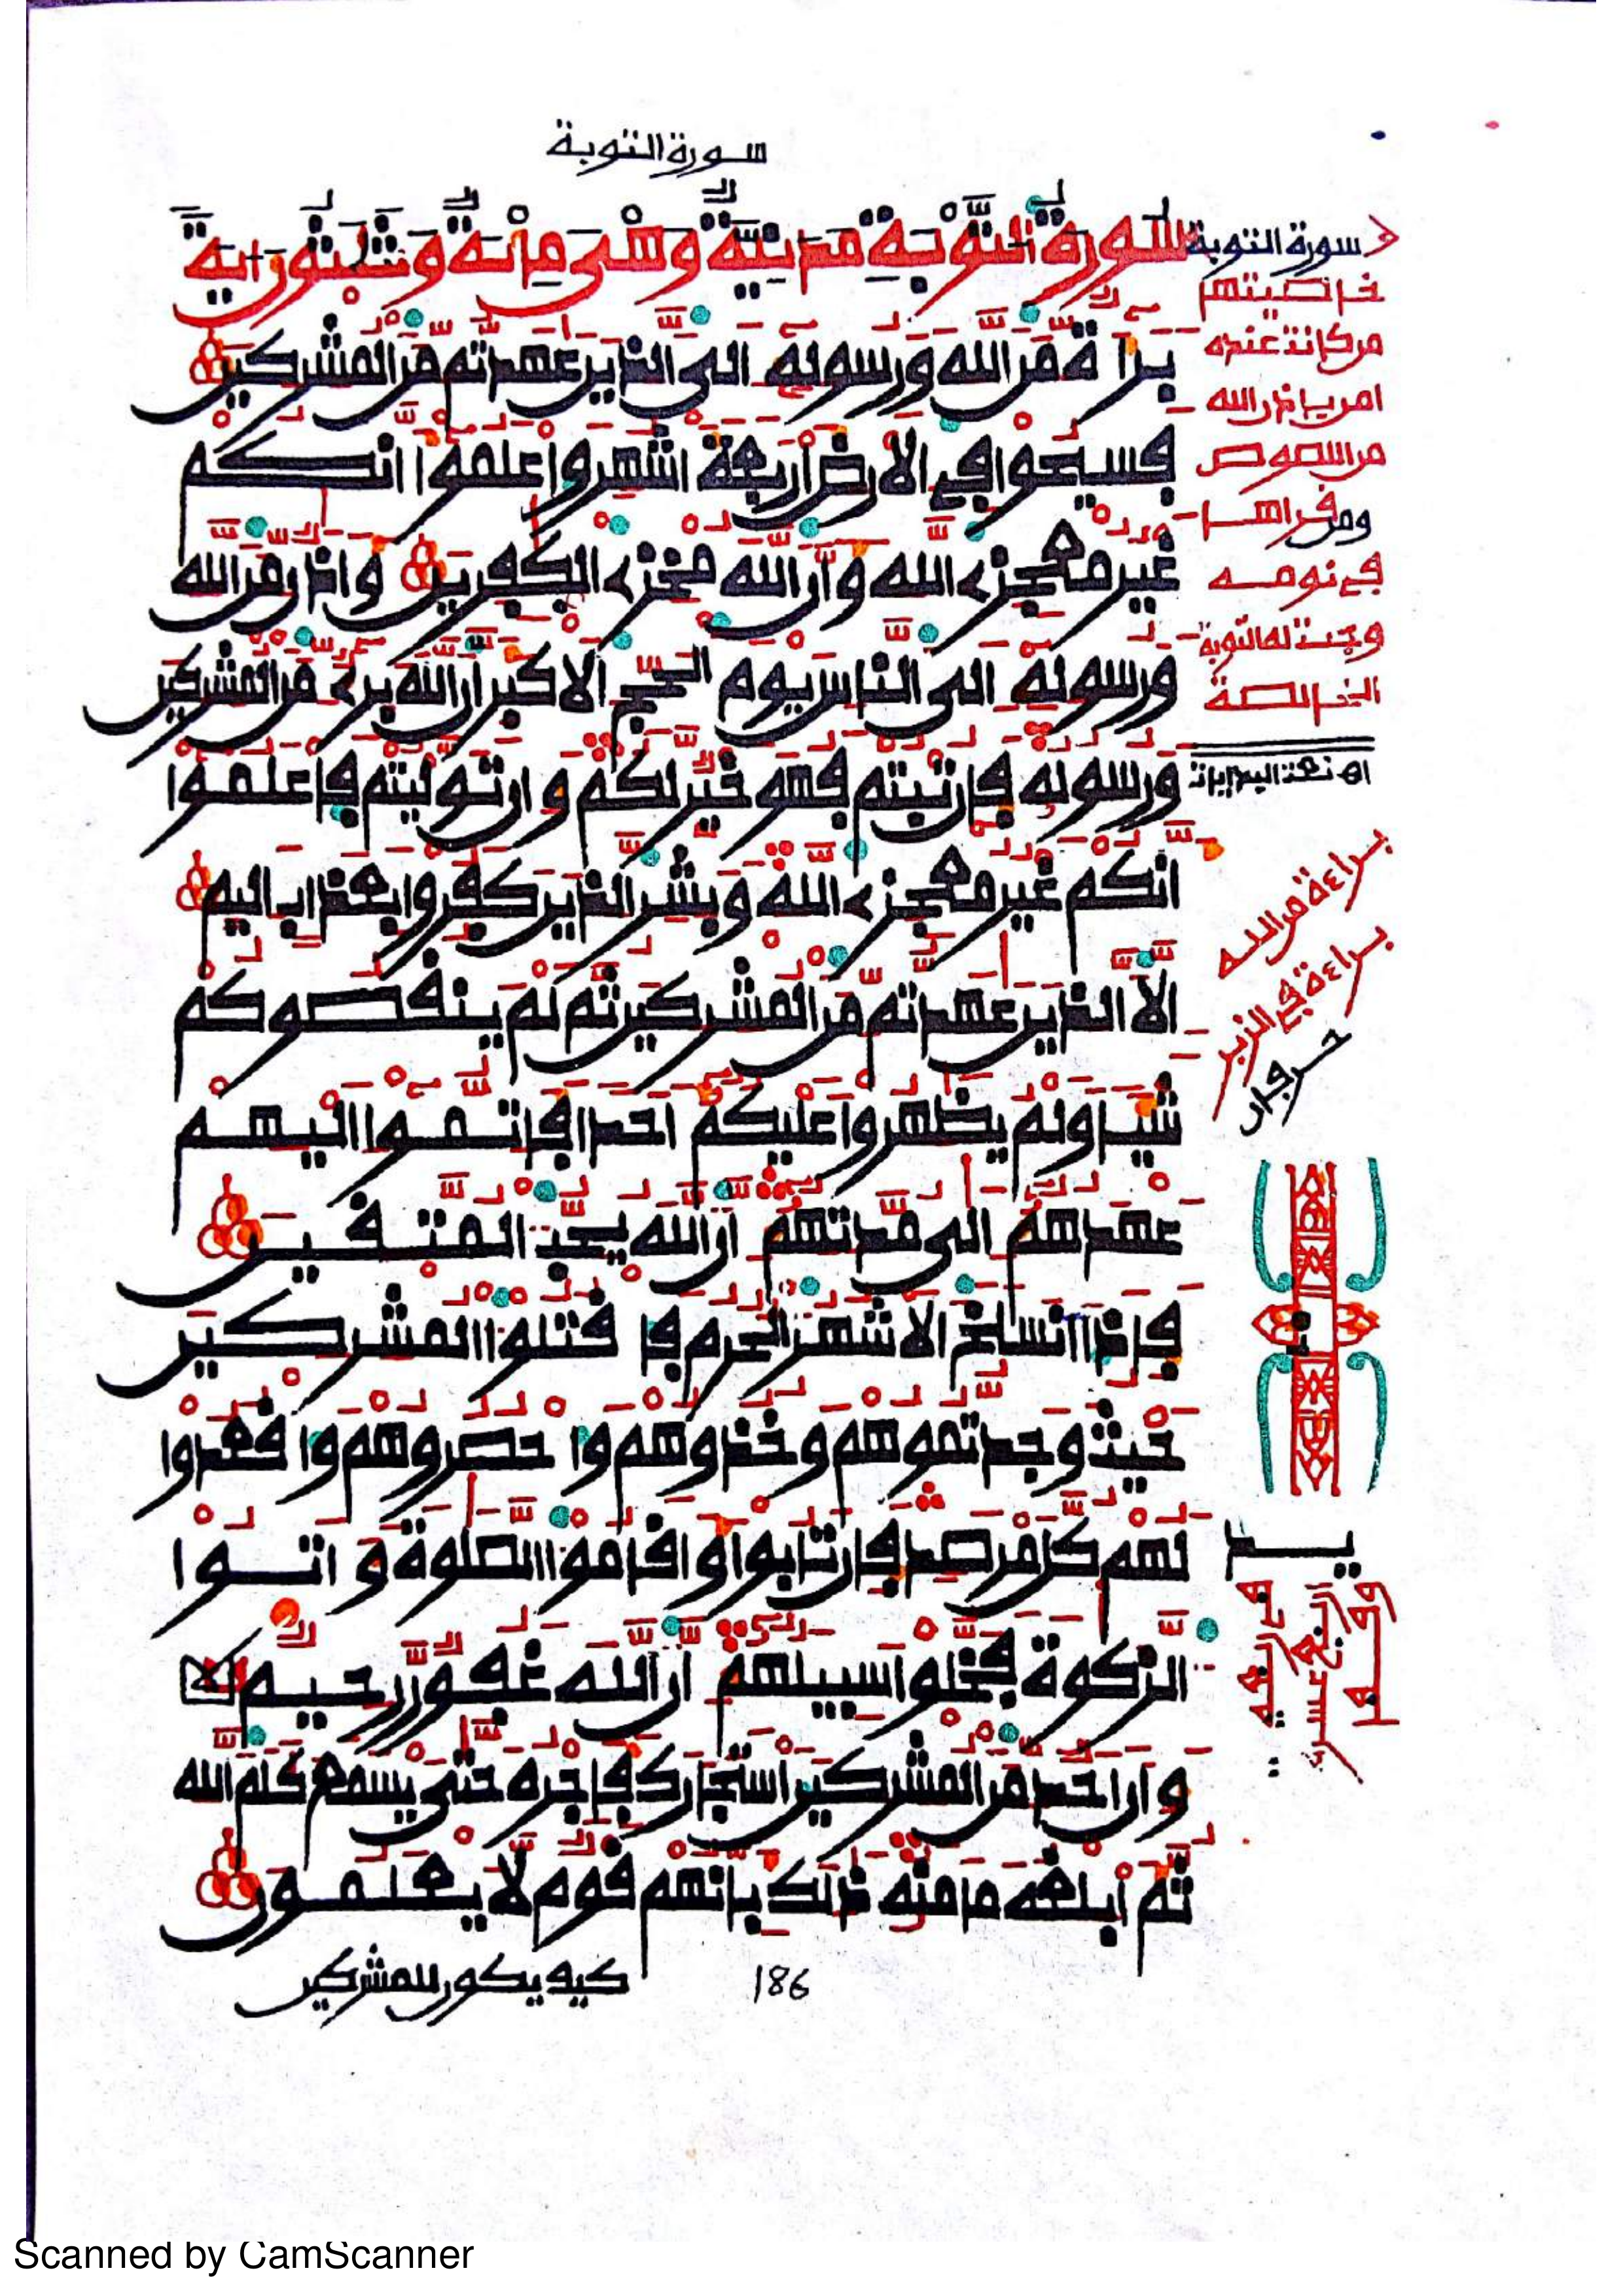 سورة التوبة
سورة التوبة مدنية وهي مائة وثلثون اية
براءة من الله ورسوله إلى الذين عهدتم من المشركين
فسيحوا في الارض أربعة أشهر واعلموا أنكم
غير معجزى الله وأن الله مخزى الكفرين وأذن من الله
ورسوله إلى الناس يوم الحج الأكبر أن الله برىء من المشركين
ورسوله فإن تبتم فهو خير لكم وإن توليتم فاعلموا
أنكم غير معجزى الله وبشر الذين كفروا بعذاب اليم
إلا الذين عهدتم من المشركين ثم لم ينقصوكم
شيئا ولم يظهروا عليكم أحدا فأتموا إليهم
عهدهم إلى مدتهم إن الله يحب المتقين
فإذا انسلخ الأشهر الحرم فاقتلوا المشركين
حيث وجدتموهم وخذوهم واحصروهم واقعدوا
لهم كل مرصد فإن تابوا وأقاموا الصلوة وءاتوا
الزكوة فخلوا سبيلهم إن الله غفور رحيم
وإن أحد من المشركين استجارك فأجره حتى يسمع كلم الله
ثم أبلغه مأمنه ذلك بأنهم قوم لا يعلمون
كيف يكون للمشركين
186
سورة التوبة
خاصيتها
من كانت عنده
امن باذن الله
من اللصوص
ومن قراها
في نومه
وجبت له التوبة
الخالصة
براءة من الله
براءة في الزبر
Scanned by CamScanner